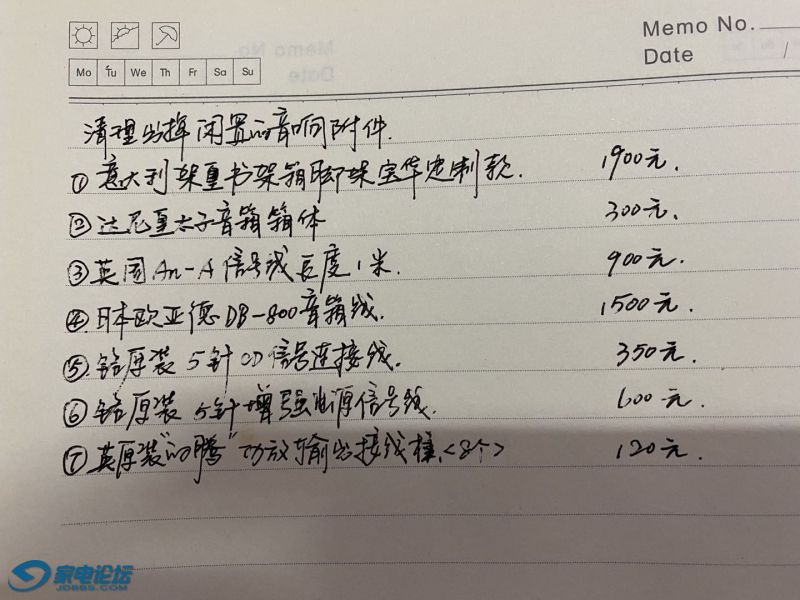 Memo No.
Date /
Mo Tu We Th Fr Sa Su
清理出掉闲置的音响附件.
① 意大利 书架箱脚珠宝华定制款. 1900元.
② 达尼 太子音箱箱体 300元.
③ 英国 An-A 信号线 长度1米. 900元.
④ 日本欧亚德 DB-800音箱线. 1500元.
⑤ 原装 5针 CD 信号连接线. 350元.
⑥ 原装 5针增强电源信号线. 600元.
⑦ 英原装"的腾"功放输出接线柱.<8个> 120元.
家电论坛
JDBBS.COM